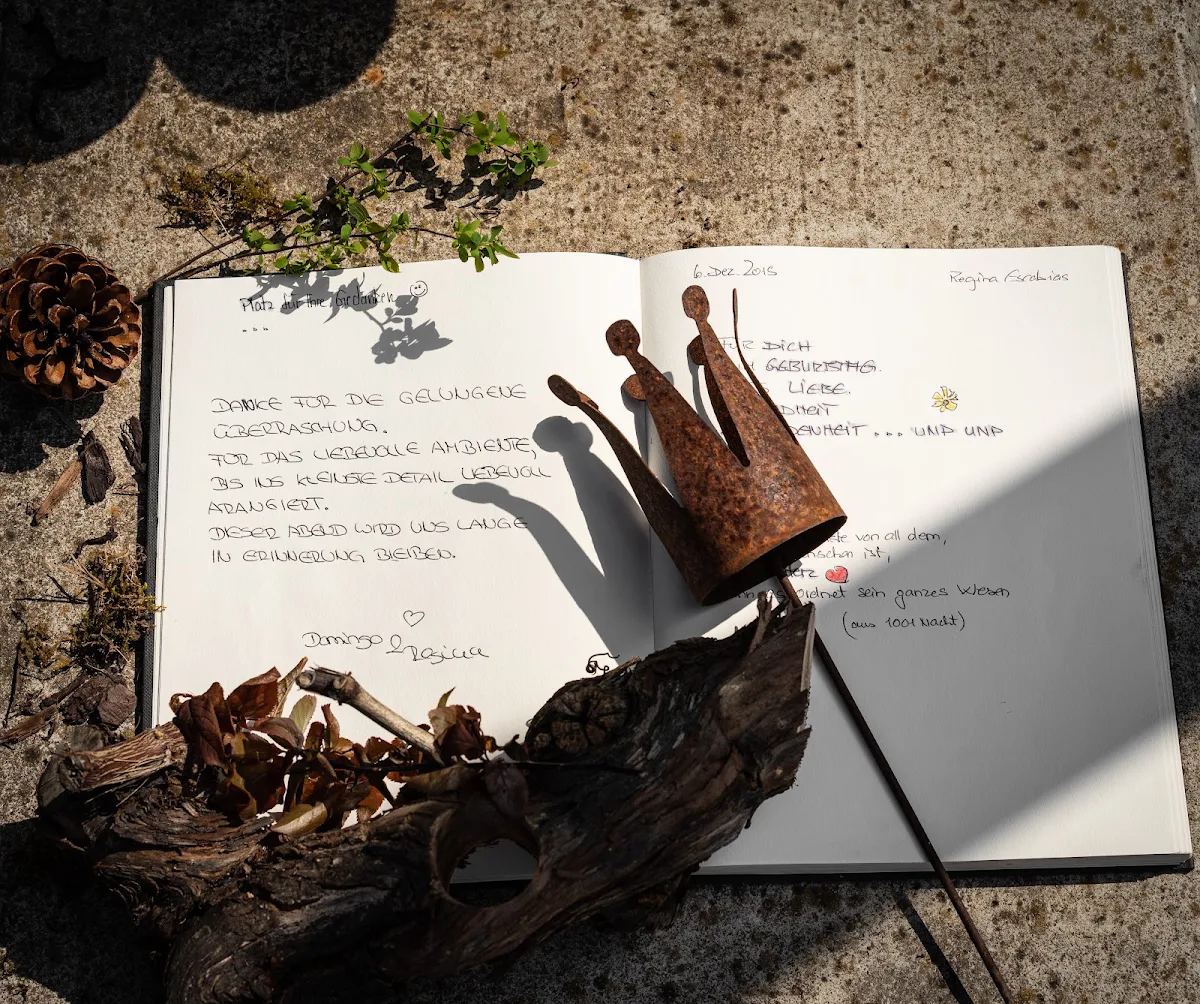 Platz für Ihre Gedanken
...
DANKE FÜR DIE GELUNGENE
ÜBERRASCHUNG.
FÜR DAS LIEBEVOLLE AMBIENTE,
BIS INS KLEINSTE DETAIL LIEBEVOLL
ARANGIERT.
DIESER ABEND WIRD UNS LANGE
IN ERINNERUNG BLEIBEN.
Domingo & Regina
6. Dez. 2015
Regina
FÜR DICH
GEBURTSTAG.
LIEBE.
... UND UND
von all dem,
ist,
ordnet sein ganzes Wesen
(aus 1001 Nacht)